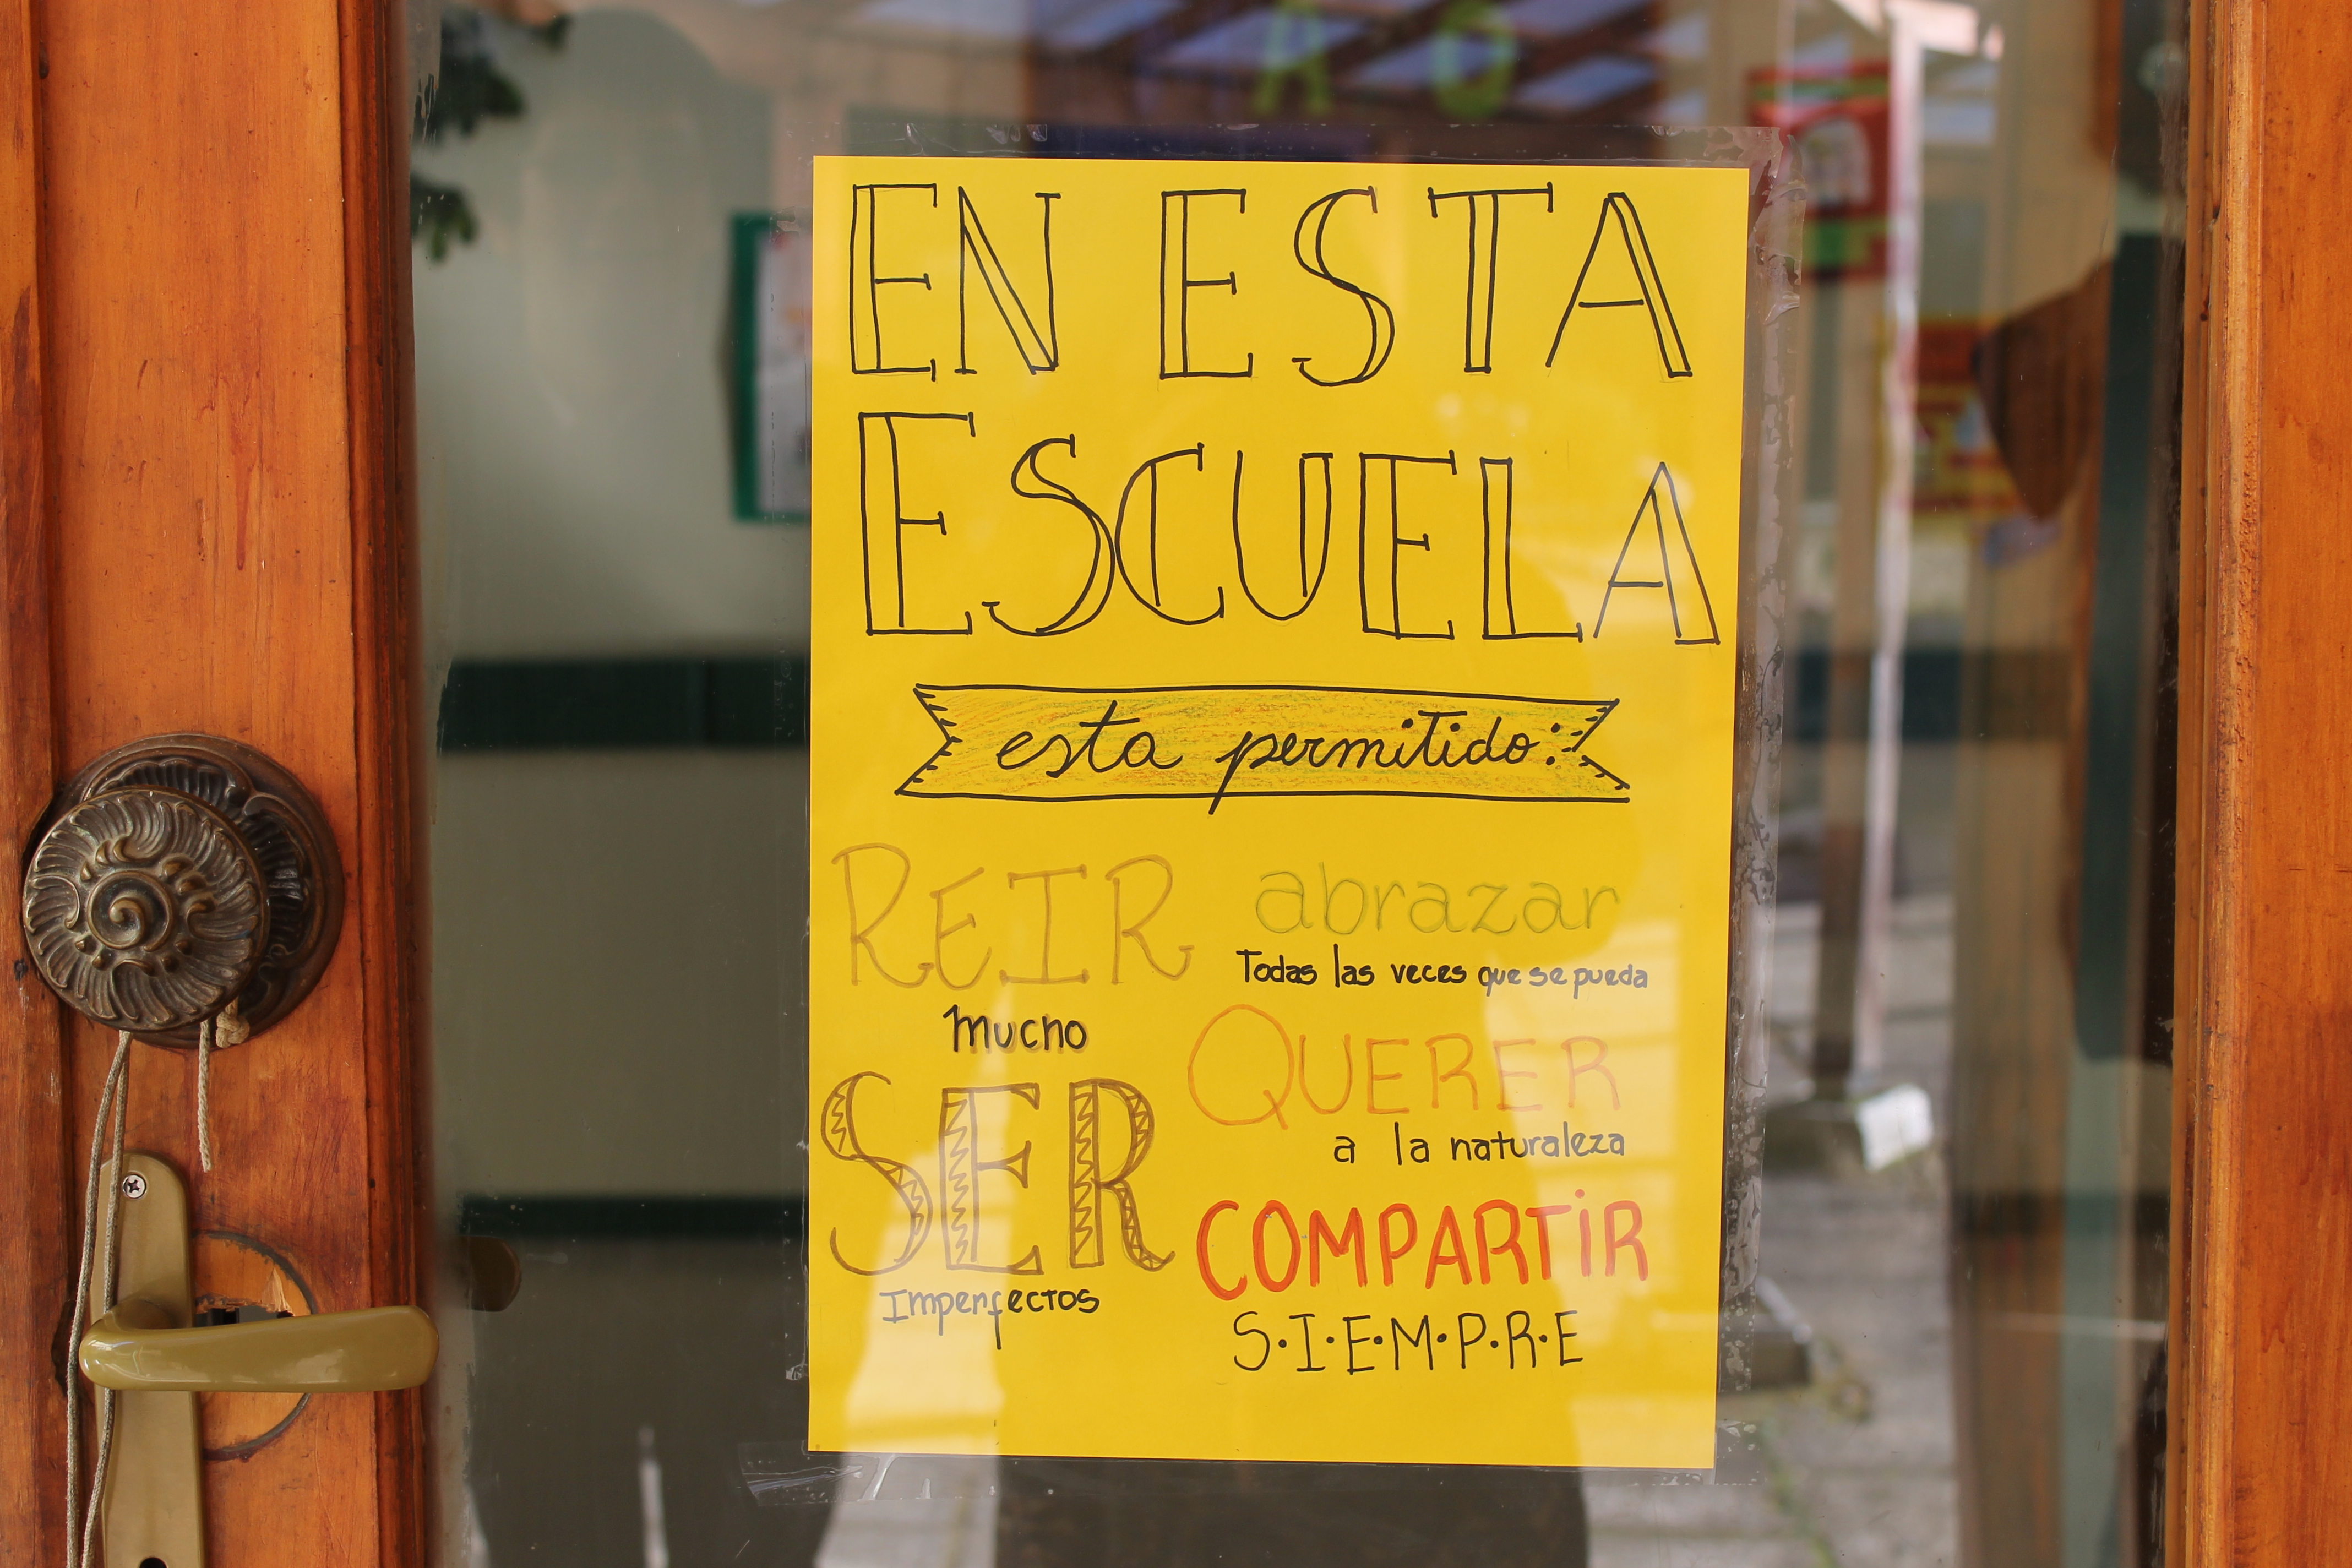 A O
EN ESTA
ESCUELA
esta permitido:
REIR
mucho
SER
Imperfectos
abrazar
Todas las veces que se pueda
QUERER
a la naturaleza
COMPARTiR
S·I·E·M·P·R·E